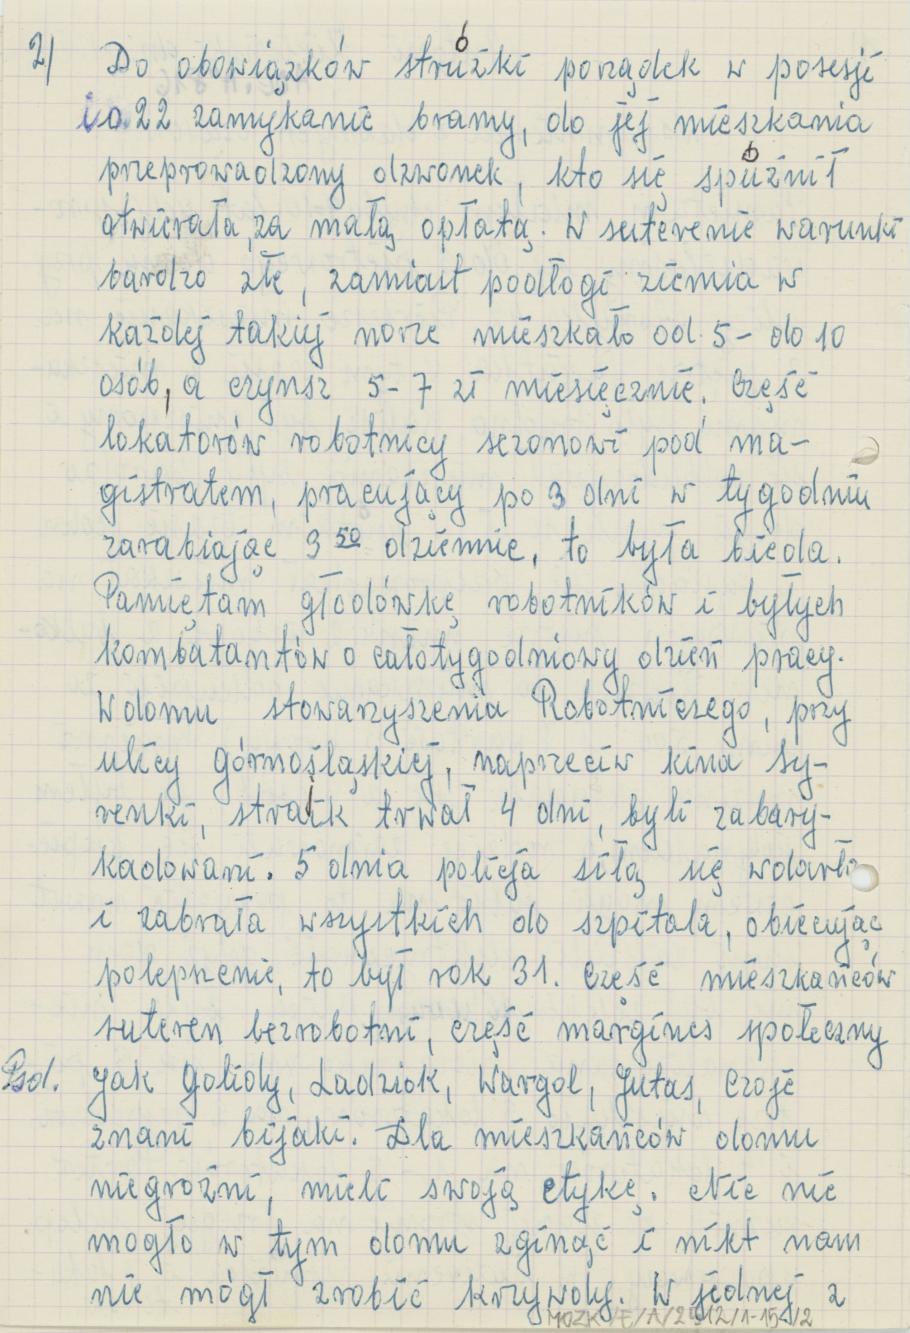 2/ Do obowiązków stróżki porządek w posesji
i o 22 zamykanie bramy, do jej mieszkania
przeprowadzony dzwonek, kto się spóźnił
otwierała, za małą opłatą. W suterenie warunki
bardzo złe, zamiast podłogi ziemia w
każdej takiej norze mieszkało od. 5 - do 10
osób, a czynsz 5-7 zł miesięcznie. Część
lokatorów robotnicy sezonowi pod ma-
gistratem, pracujący po 3 dni w tygodniu
zarabiając 3 50 dziennie, to była bieda.
Pamiętam głodówkę robotników i byłych
kombatantów o całotygodniowy dzień pracy.
W domu stowarzyszenia Robotniczego, przy
ulicy górnośląskiej, naprzeciw kina Sy-
renki, strajk trwał 4 dni, byli zabary-
kadowani. 5 dnia policja siłą się wdarła
i zabrała wszystkich do szpitala, obiecując
polepszenie, to był rok 31. Część mieszkańców
suteren bezrobotni, część margines społeczny
Psd. jak Golidy, Ladziok, Wargol, Jutas, Czojć
znani bijaki. Dla mieszkańców domu
niegroźni, mieli swoją etykę. Nic nie
mogło w tym domu zginąć i nikt nam
nie mógł zrobić krzywdy. W jednej z